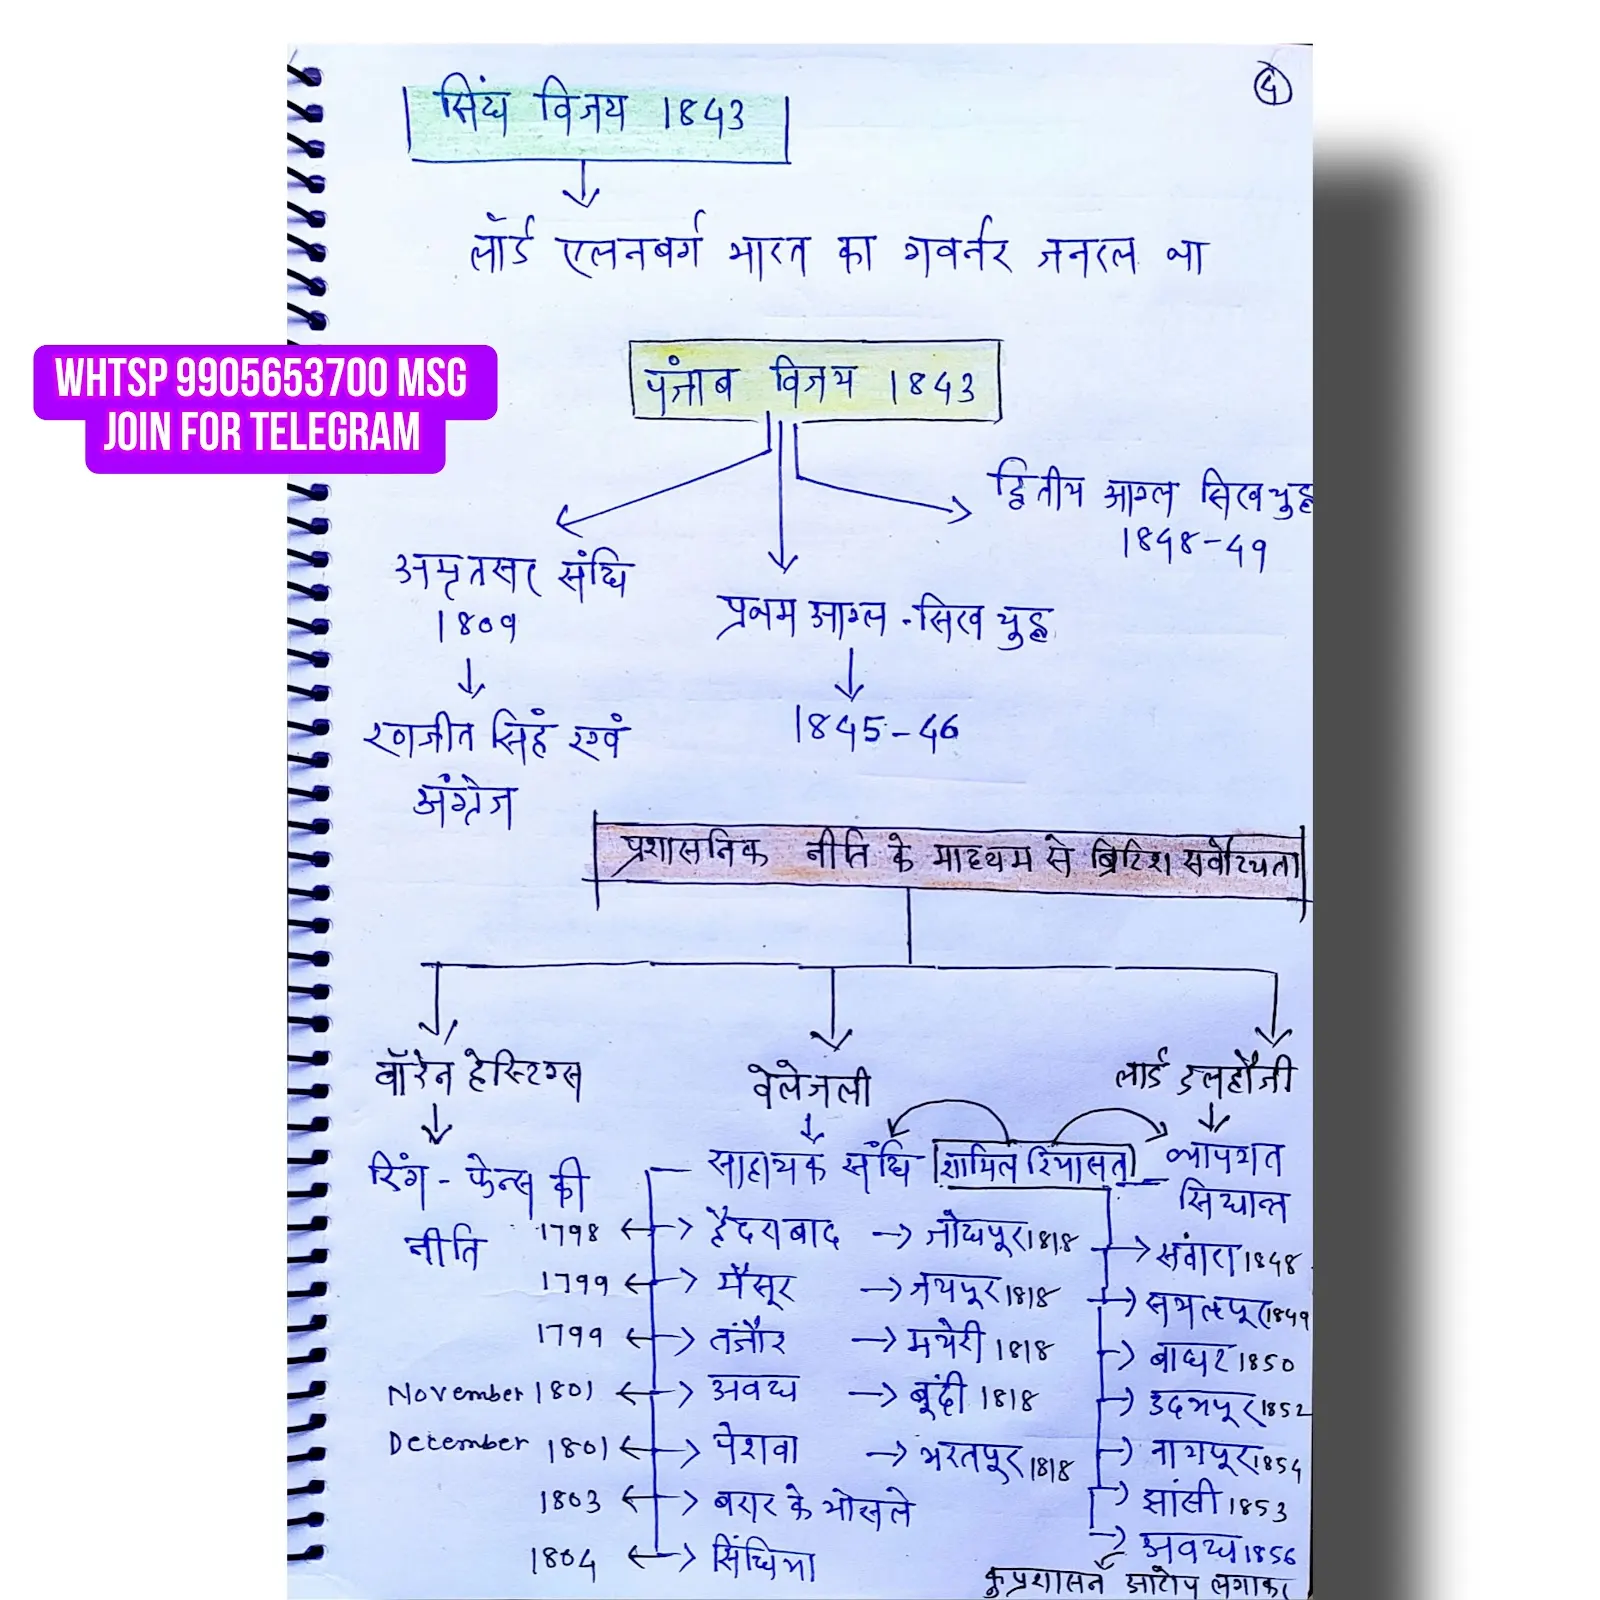 4
सिंध विजय 1843
लॉर्ड एलनबर्ग भारत का गवर्नर जनरल था
WHTSP 9905653700 MSG
JOIN FOR TELEGRAM
पंजाब विजय 1843
द्वितीय आंग्ल सिख युद्ध
1848-49
अमृतसर संधि
1809
प्रथम आंग्ल-सिख युद्ध
1845-46
रणजीत सिहं एवं
अंग्रेज
प्रशासनिक नीति के माध्यम से ब्रिटिश सर्वोच्यता
वॉरेन हेस्टिंग्स
वेलेजली
लार्ड डलहौजी
रिंग-फेन्स की
नीति
सहायक संधि शामिल रियासत
व्यापगत
सिध्यान्त
1798 हैदराबाद जोधपुर 1818
सतारा 1848
1799 मैसूर जयपुर 1818
सम्भलपुर 1849
1799 तंजौर मचेरी 1818
बाघट 1850
November 1801 अवध बूंदी 1818
उदयपुर 1852
December 1801 पेशवा भरतपुर 1818
नागपुर 1854
1803 बरार के भोसले
झांसी 1853
1804 सिंधिया
अवध 1856
कुप्रशासन आरोप लगाकर